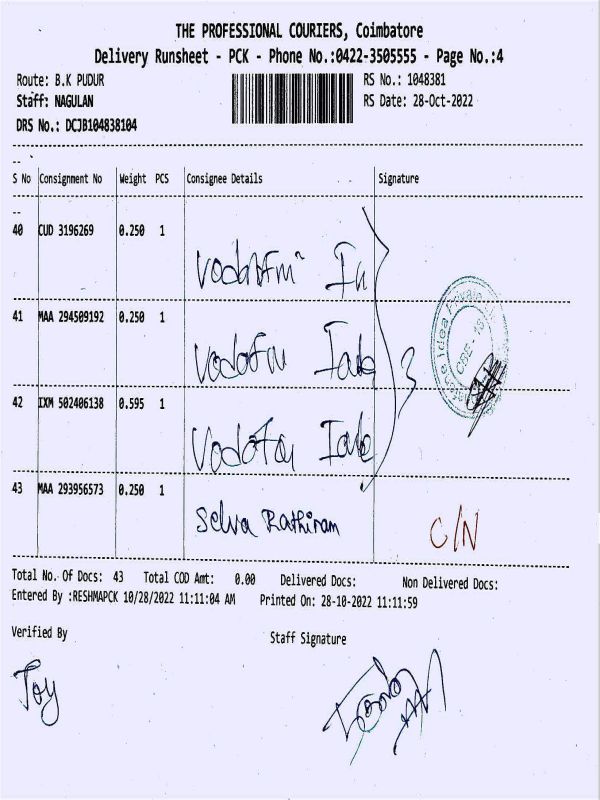 THE PROFESSIONAL COURIERS, Coimbatore
Delivery Runsheet - PCK - Phone No.:0422-3505555 - Page No.:4
Route: B.K PUDUR RS No.: 1048381
Staff: NAGULAN RS Date: 28-Oct-2022
DRS No.: DCJB104838104
S No Consignment No Weight PCS Consignee Details Signature
40 CUD 3196269 0.250 1
41 MAA 294509192 0.250 1
42 IXM 502406138 0.595 1
3
43 MAA 293956573 0.250 1 Selva Rathinam C/N
Total No. Of Docs: 43 Total COD Amt: 0.00 Delivered Docs: Non Delivered Docs:
Entered By :RESHMAPCK 10/28/2022 11:11:04 AM Printed On: 28-10-2022 11:11:59
Verified By Staff Signature
Joy